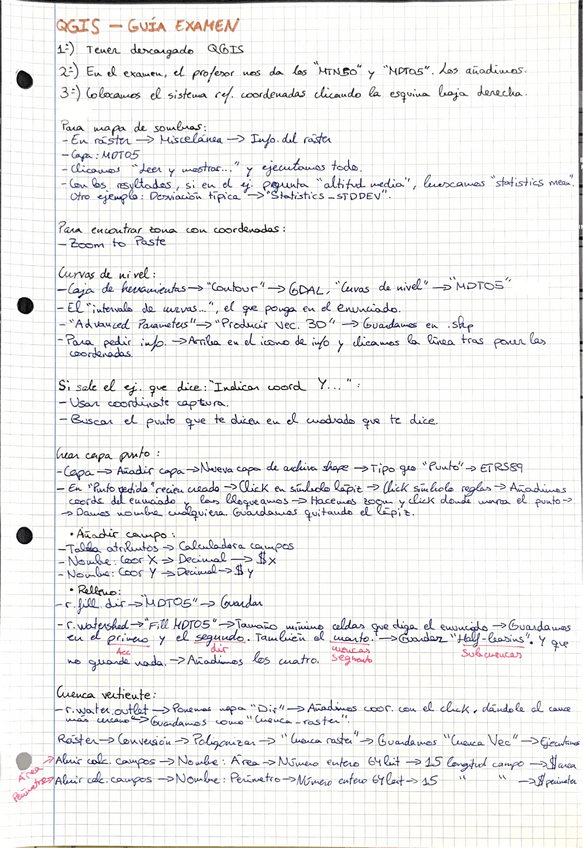 QGIS — GUÍA EXAMEN
1º) Tener descargado QGIS
2º) En el examen, el profesor nos da los "MTN50" y "MDT05". Los añadimos.
3º) Colocamos el sistema ref. coordenadas clicando la esquina baja derecha.
Para mapa de sombras:
- En ráster → Miscelánea → Info. del ráster
- Capa: MDT05
- Clicamos "Leer y mostrar..." y ejecutamos todo.
- Con los resultados, si en el ej. pregunta "altitud media", buscamos "statistics mean".
Otro ejemplo: Desviación típica → "Statistics - STDDEV".
Para encontrar zona con coordenadas:
- Zoom to Paste
Curvas de nivel:
- Caja de herramientas → "Contour" → GDAL, "Curvas de nivel" → "MDT05"
- El "intervalo de curvas...", el que ponga en el enunciado.
- "Advanced Parameters" → "Producir Vec. 3D" → Guardamos en .shp
- Para pedir info. → Arriba en el icono de info y clicamos la línea tras poner las
coordenadas
Si sale el ej. que dice: "Indican coord Y...":
- Usar coordinate captura.
- Buscar el punto que te dicen en el cuadrado que te dice.
Crear capa punto:
- Capa → Añadir capa → Nueva capa de archivo shape → Tipo geo "Punto" → ETRS89
- En "Punto pedido" recien creado → Click en símbolo lápiz → Click símbolo reglas → Añadimos
coords del enunciado y las bloqueamos → Hacemos zoom y click donde marca el punto →
→ Damos nombre cualquiera. Guardamos quitando el lápiz.
• Añadir campo:
- Tabla atributos → Calculadora campos
- Nombre: Coor X → Decimal → $x
- Nombre: Coor Y → Decimal → $y
• Relleno:
- r.fill.dir → "MDT05" → Guardar
- r.watershed → "Fill MDT05" → Tamaño mínimo celdas que diga el enunciado → Guardamos
en el primero y el segundo. También el cuarto. → Guardar "Half-basins". Y que
Acc dir cuencas Subcuencas
no guarde nada. → Añadimos los cuatro. Segmento
Cuenca vertiente:
- r.water.outlet → Ponemos mapa "Dir" → Añadimos coor. con el click, dándole al cauce
más cercano → Guardamos como "Cuenca-raster".
Ráster → Conversión → Poligonizar → "Cuenca raster" → Guardamos "Cuenca Vec" → Ejecutamos
Área → Abrir calc. campos → Nombre: Area → Número entero 64 bit → 15 longitud campo → $area
Perímetro → Abrir calc. campos → Nombre: Perimetro → Número entero 64 bit → 15 " " → $perimeter